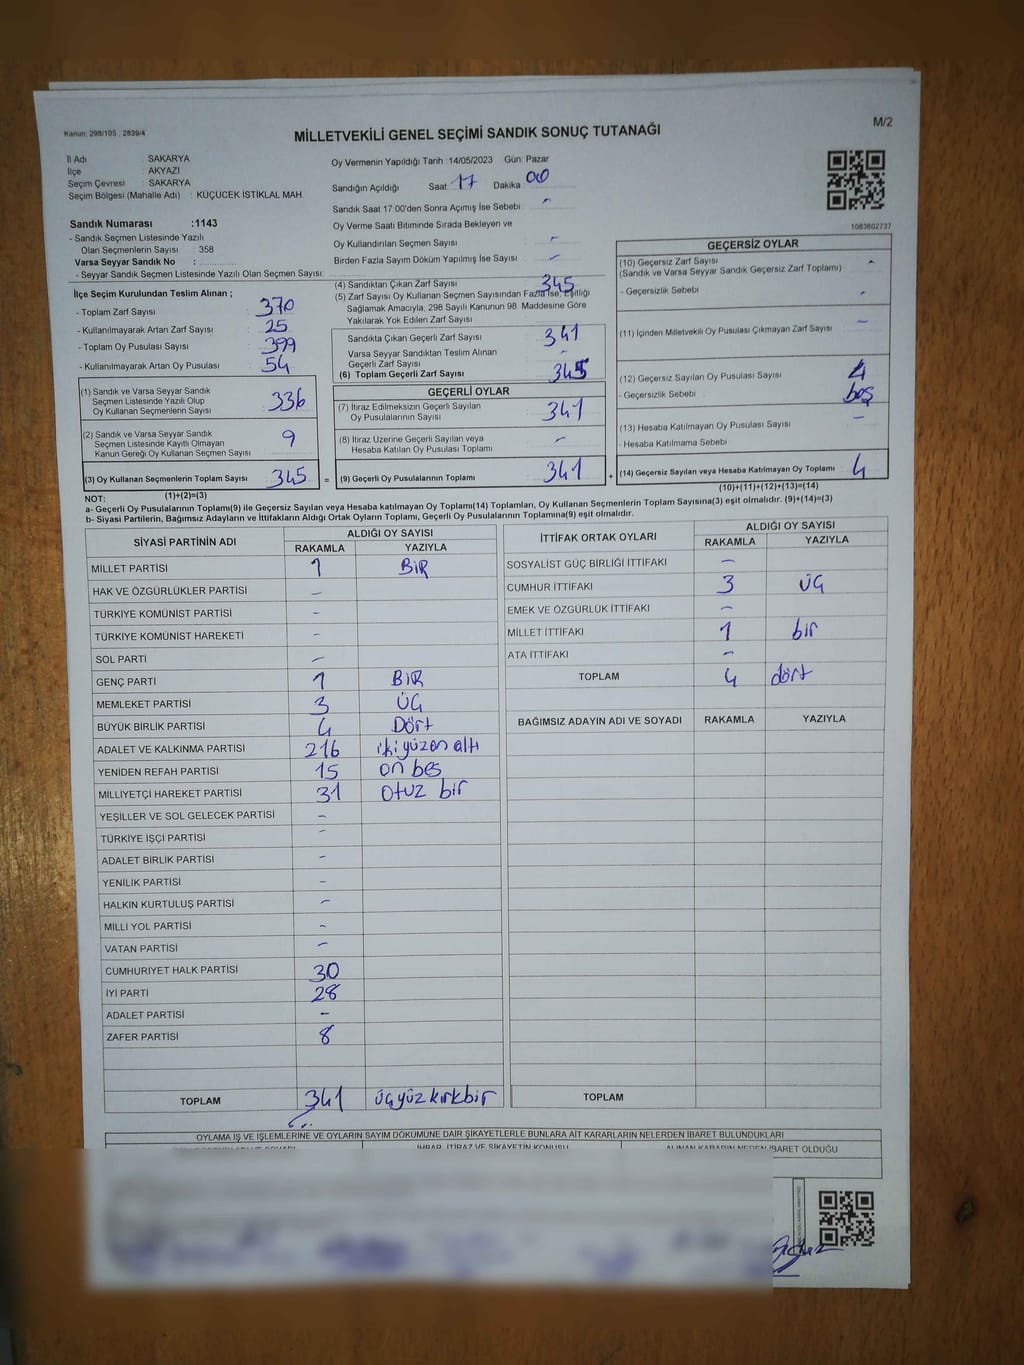 Kanun: 298/105 , 2839/4
M/2
MİLLETVEKİLİ GENEL SEÇİMİ SANDIK SONUÇ TUTANAĞI
İl Adı : SAKARYA
İlçe : AKYAZI
Seçim Çevresi : SAKARYA
Seçim Bölgesi (Mahalle Adı) : KÜÇÜCEK İSTİKLAL MAH.
Sandık Numarası :1143
- Sandık Seçmen Listesinde Yazılı
Olan Seçmenlerin Sayısı : 358
Varsa Seyyar Sandık No :
- Seyyar Sandık Seçmen Listesinde Yazılı Olan Seçmen Sayısı:
İlçe Seçim Kurulundan Teslim Alınan ;
- Toplam Zarf Sayısı : 370
- Kullanılmayarak Artan Zarf Sayısı : 25
- Toplam Oy Pusulası Sayısı : 399
- Kullanılmayarak Artan Oy Pusulası : 54
(1) Sandık ve Varsa Seyyar Sandık
Seçmen Listesinde Yazılı Olup
Oy Kullanan Seçmenlerin Sayısı : 336
(2) Sandık ve Varsa Seyyar Sandık
Seçmen Listesinde Kayıtlı Olmayan
Kanun Gereği Oy Kullanan Seçmen Sayısı : 9
(3) Oy Kullanan Seçmenlerin Toplam Sayısı : 345
(1)+(2)=(3)
Oy Vermenin Yapıldığı Tarih :14/05/2023 Gün: Pazar
Sandığın Açıldığı Saat : 17 Dakika : 00
Sandık Saat 17:00'den Sonra Açımış İse Sebebi : -
Oy Verme Saati Bitiminde Sırada Bekleyen ve
Oy Kullandırılan Seçmen Sayısı : -
Birden Fazla Sayım Döküm Yapılmış İse Sayısı : -
(4) Sandıktan Çıkan Zarf Sayısı : 345
(5) Zarf Sayısı Oy Kullanan Seçmen Sayısından Fazla İse, Eşitliği
Sağlamak Amacıyla, 298 Sayılı Kanunun 98. Maddesine Göre
Yakılarak Yok Edilen Zarf Sayısı
Sandıkta Çıkan Geçerli Zarf Sayısı : 341
Varsa Seyyar Sandıktan Teslim Alınan
Geçerli Zarf Sayısı : -
(6) Toplam Geçerli Zarf Sayısı : 345
GEÇERLİ OYLAR
(7) İtiraz Edilmeksizin Geçerli Sayılan
Oy Pusulalarının Sayısı : 341
(8) İtiraz Üzerine Geçerli Sayılan veya
Hesaba Katılan Oy Pusulası Toplamı : -
= (9) Geçerli Oy Pusulalarının Toplamı : 341
1083602737
GEÇERSİZ OYLAR
(10) Geçersiz Zarf Sayısı : -
(Sandık ve Varsa Seyyar Sandık Geçersiz Zarf Toplamı)
- Geçersizlik Sebebi : -
(11) İçinden Milletvekili Oy Pusulası Çıkmayan Zarf Sayısı : -
(12) Geçersiz Sayılan Oy Pusulası Sayısı : 4
- Geçersizlik Sebebi : boş
(13) Hesaba Katılmayan Oy Pusulası Sayısı : -
- Hesaba Katılmama Sebebi :
+ (14) Geçersiz Sayılan veya Hesaba Katılmayan Oy Toplamı : 4
(10)+(11)+(12)+(13)=(14)
NOT:
a- Geçerli Oy Pusulalarının Toplamı(9) ile Geçersiz Sayılan veya Hesaba Katılmayan Oy Toplamı(14) Toplamları, Oy Kullanan Seçmenlerin Toplam Sayısına(3) eşit olmalıdır. (9)+(14)=(3)
b- Siyasi Partilerin, Bağımsız Adayların ve İttifakların Aldığı Ortak Oyların Toplamı, Geçerli Oy Pusulalarının Toplamına(9) eşit olmalıdır.
SİYASİ PARTİNİN ADI ALDIĞI OY SAYISI
RAKAMLA YAZIYLA
MİLLET PARTİSİ 1 BİR
HAK VE ÖZGÜRLÜKLER PARTİSİ -
TÜRKİYE KOMÜNİST PARTİSİ -
TÜRKİYE KOMÜNİST HAREKETİ -
SOL PARTİ -
GENÇ PARTİ 1 BİR
MEMLEKET PARTİSİ 3 ÜÇ
BÜYÜK BİRLİK PARTİSİ 4 Dört
ADALET VE KALKINMA PARTİSİ 216 ikiyüzon altı
YENİDEN REFAH PARTİSİ 15 on beş
MİLLİYETÇİ HAREKET PARTİSİ 31 otuz bir
YEŞİLLER VE SOL GELECEK PARTİSİ -
TÜRKİYE İŞÇİ PARTİSİ -
ADALET BİRLİK PARTİSİ -
YENİLİK PARTİSİ -
HALKIN KURTULUŞ PARTİSİ -
MİLLİ YOL PARTİSİ -
VATAN PARTİSİ -
CUMHURİYET HALK PARTİSİ 30
İYİ PARTİ 28
ADALET PARTİSİ -
ZAFER PARTİSİ 8
TOPLAM 341 üçyüzkırkbir
İTTİFAK ORTAK OYLARI ALDIĞI OY SAYISI
RAKAMLA YAZIYLA
SOSYALİST GÜÇ BİRLİĞİ İTTİFAKI -
CUMHUR İTTİFAKI 3 ÜÇ
EMEK VE ÖZGÜRLÜK İTTİFAKI -
MİLLET İTTİFAKI 1 bir
ATA İTTİFAKI -
TOPLAM 4 dört
BAĞIMSIZ ADAYIN ADI VE SOYADI RAKAMLA YAZIYLA
TOPLAM
OYLAMA İŞ VE İŞLEMLERİNE VE OYLARIN SAYIM DÖKÜMÜNE DAİR ŞİKAYETLERLE BUNLARA AİT KARARLARIN NELERDEN İBARET BULUNDUKLARI
İHBAR, İTİRAZ VE ŞİKAYETİN KONUSU
ALINAN KARARIN NEDEN İBARET OLDUĞU